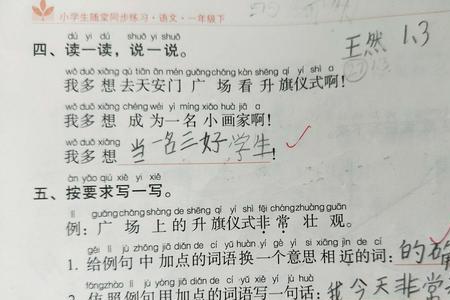 小学生随堂同步练习·语文·一年级下
dú yi dú shuō yi shuō
四、读一读，说一说。
王然 1、3
wǒ duō xiǎng qù tiān ān mén guǎng chǎng kàn shēng qí yí shì a
我多想去天安门广场看升旗仪式啊！
wǒ duō xiǎng chéng wéi yì míng xiǎo huà jiā a
我多想成为一名小画家啊！
wǒ duō xiǎng
我多想 当一名三好学生！
àn yāo qiú xiě yi xiě
五、按要求写一写。
lì guǎng chǎng shàng de shēng qí yí shì fēi cháng zhuàng guān
例：广场上的升旗仪式非常壮观。
gěi lì jù zhōng jiā diǎn de cí yǔ huàn yí gè yì si xiāng jìn de cí
1. 给例句中加点的词语换一个意思相近的词：的确
fǎng zhào lì jù yòng jiā diǎn de cí yǔ xiě yí jù huà
2. 仿照例句用加点的词语写一句话：我今天非常